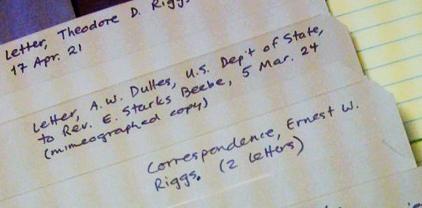 Letter, Theodore D. Riggs
17 Apr. 21
Letter, A.W. Dulles, U.S. Dep't of State,
to Rev. E. Starks Beebe, 5 Mar. 24
(mimeographed copy)
Correspondence, Ernest W.
Riggs. (2 letters)